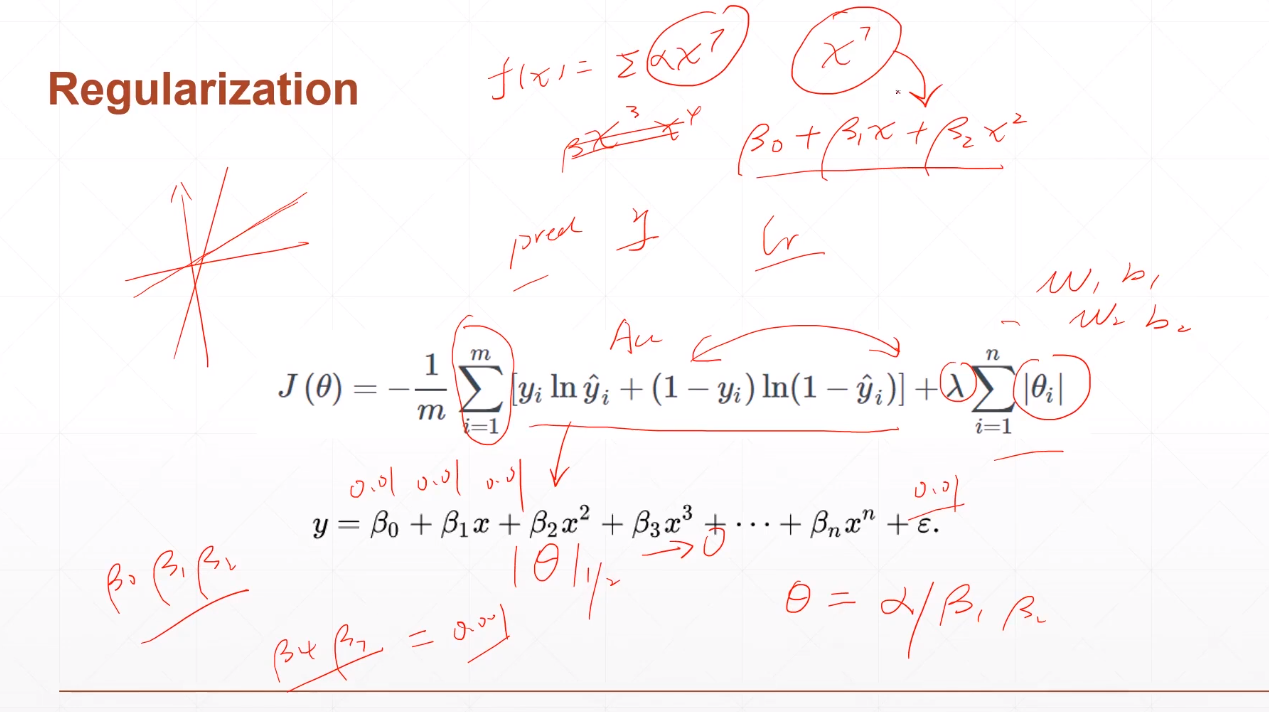 Regularization
f(x) = Σ αx⁷ x⁷
βx³ x⁴ β₀ + β₁x + β₂x²
pred y
w₁ b₁
w₂ b₂
J(θ) = −\frac{1}{m} \sum_{i=1}^{m} [y_i ln ŷ_i + (1 − y_i) ln(1 − ŷ_i)] + λ \sum_{i=1}^{n} |θ_i|
0.01 0.01 0.01 0.01
y = β₀ + β₁x + β₂x² + β₃x³ + ⋯ + βₙxⁿ + ε.
β₀ β₁ β₂ |θ|₁/₂ → 0
θ = α/β₁ β₂
β₄ β₇ = 0.001